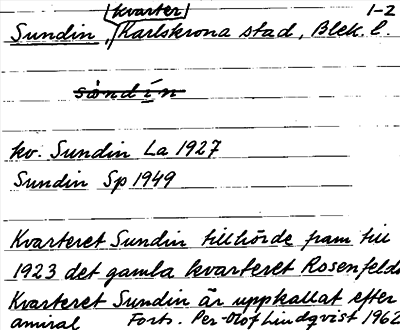 1-2
kvarter
Sundin, Karlskrona stad, Blek. l.
söndín
kv. Sundin La 1927
Sundin Sp 1949
Kvarteret Sundin tillhörde fram till
1923 det gamla kvarteret Rosenfeldt
Kvarteret Sundin är uppkallat efter
amiral Forts. Per-Olof Lindqvist 1962